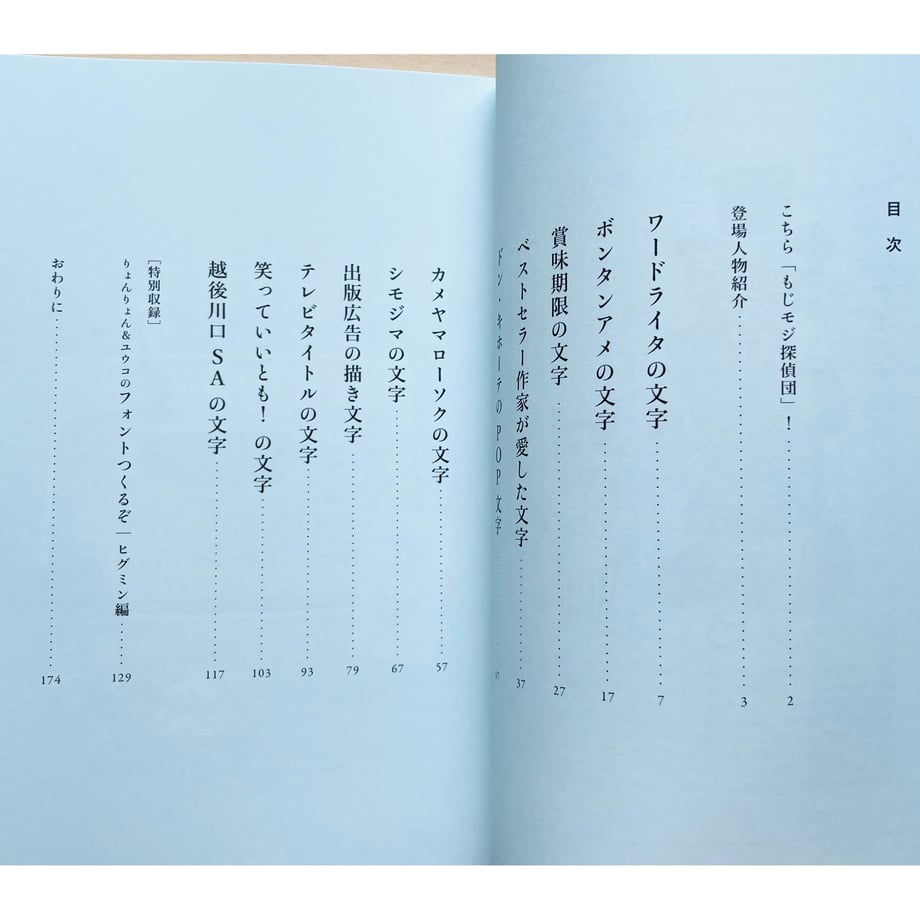 目次
こちら「もじモジ探偵団」！……………………2
登場人物紹介……………………3
ワードライタの文字……………………7
ボンタンアメの文字……………………17
賞味期限の文字……………………27
ベストセラー作家が愛した文字……………………37
ドン・キホーテのPOP文字……………………
カメヤマローソクの文字……………………57
シモジマの文字……………………67
出版広告の描き文字……………………79
テレビタイトルの文字……………………93
笑っていいとも！の文字……………………103
越後川口SAの文字……………………117
［特別収録］
りょんりょん＆ユウコのフォントつくるぞ｜ヒグミン編……129
おわりに……………………174